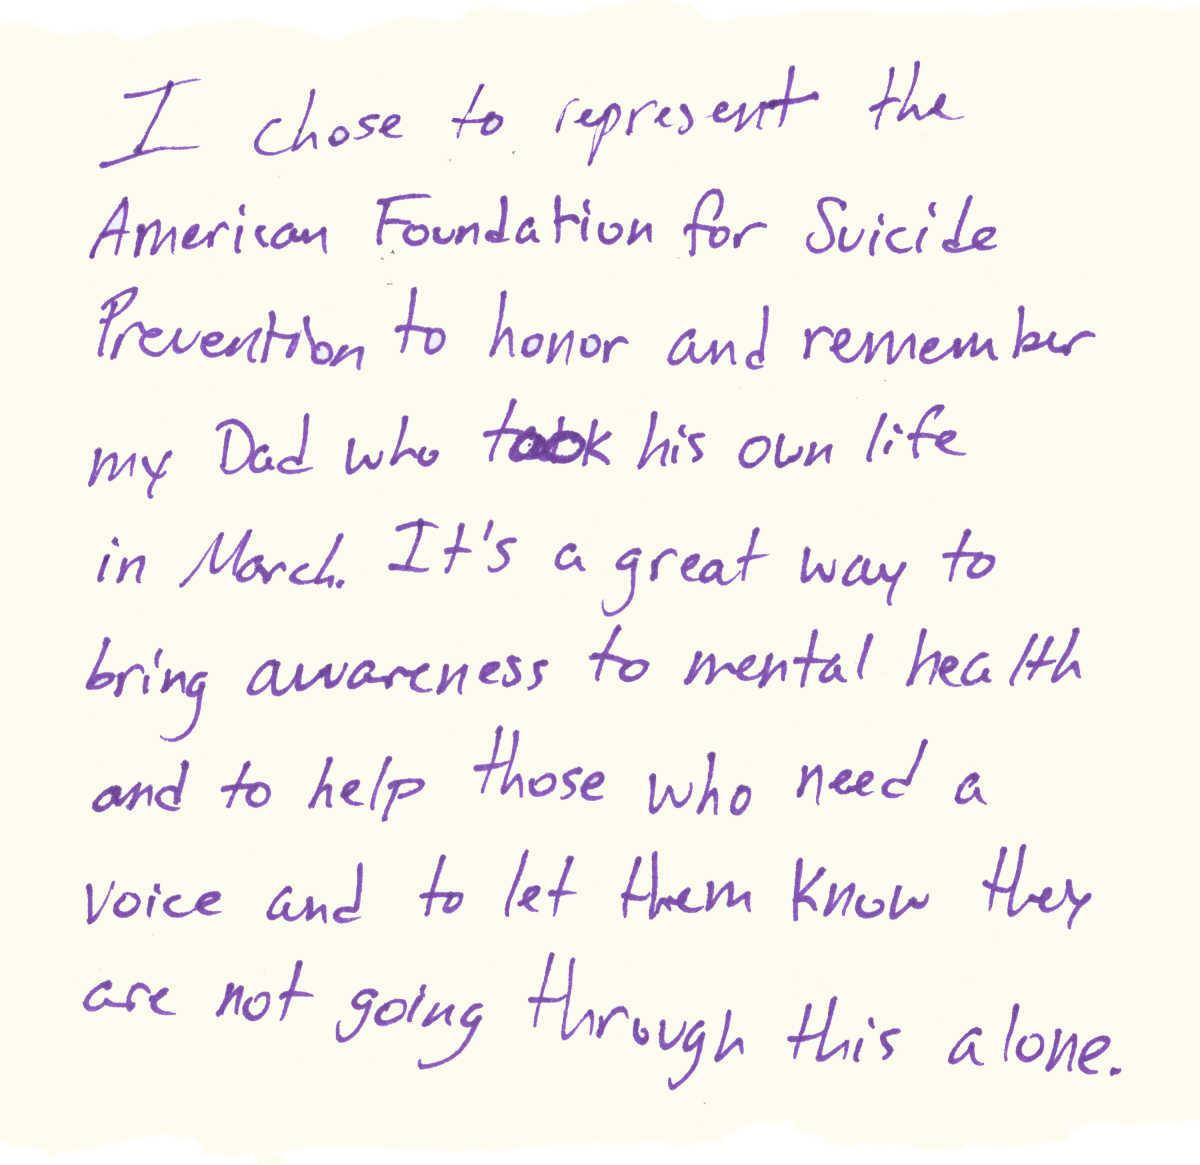 I chose to represent the
American Foundation for Suicide
Prevention to honor and remember
my Dad who took his own life
in March. It's a great way to
bring awareness to mental health
and to help those who need a
voice and to let them know they
are not going through this alone.